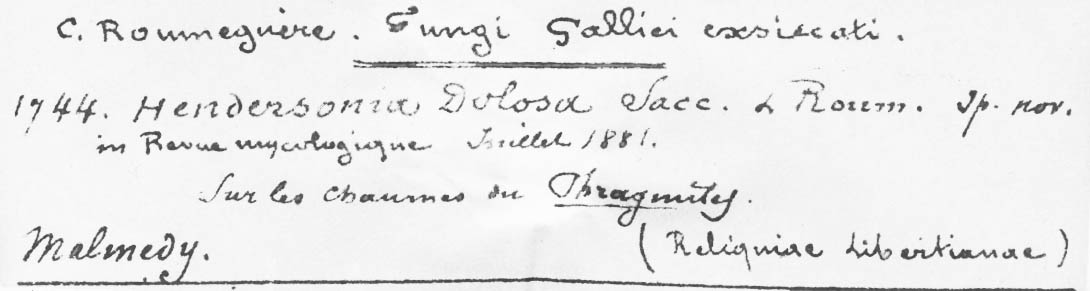 C. Roumeguère. Fungi Gallici exsiccati.
1744. Hendersonia Dolosa Sacc. & Roum. Sp. nov.
in Revue mycologique Juillet 1881.
Sur les chaumes du Phragmites.
Malmedy. (Reliquiae Libertianae)